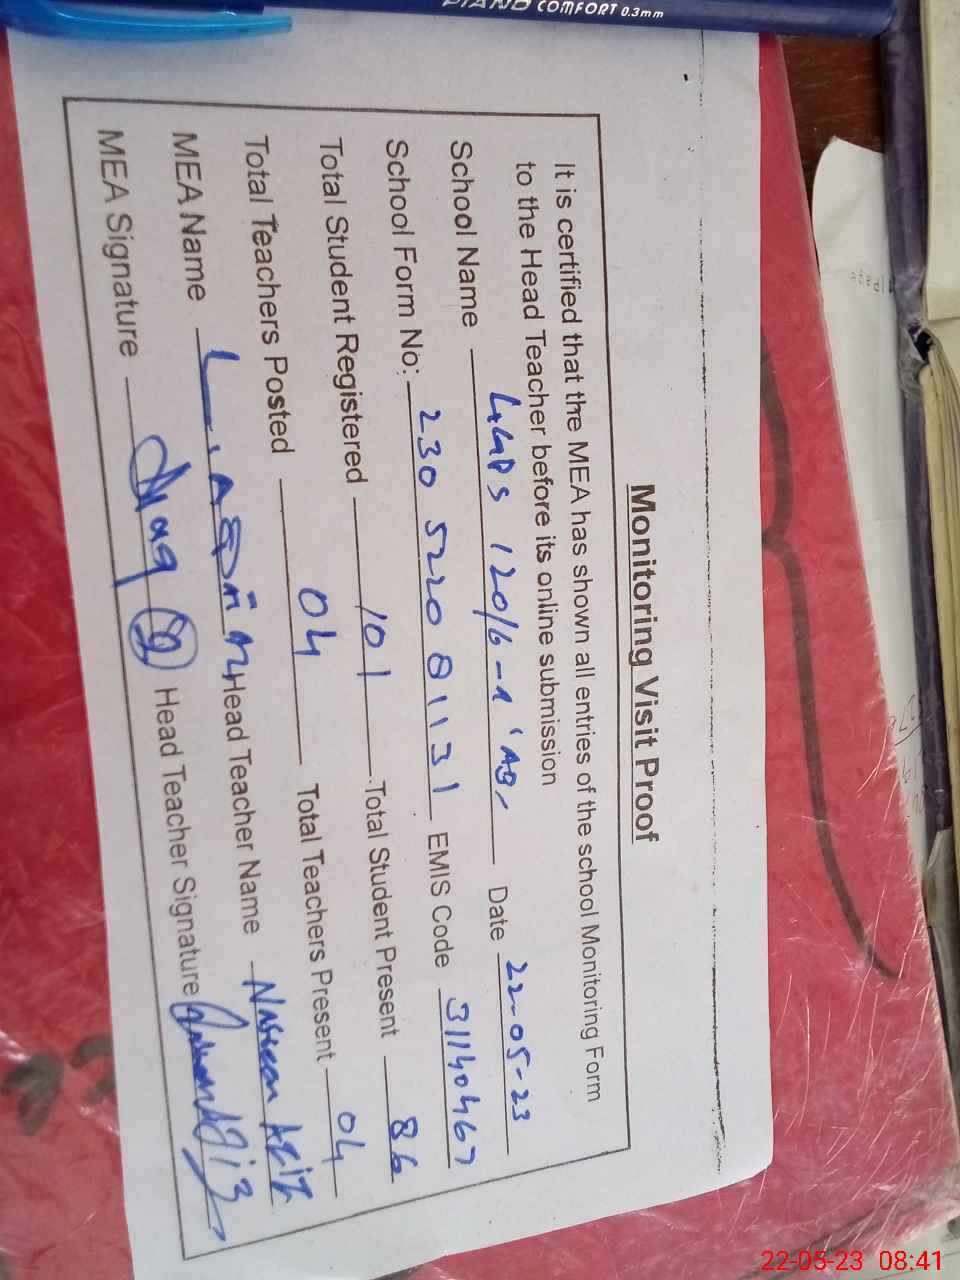 COMFORT 0.3mm
Monitoring Visit Proof
It is certified that the MEA has shown all entries of the school Monitoring Form
to the Head Teacher before its online submission
School Name GGPS 120/6-R Date 22-05-23
School Form No: 230 5220 81131 EMIS Code 31140467
Total Student Registered 101 Total Student Present 86
Total Teachers Posted 04 Total Teachers Present 04
MEA Name Head Teacher Name Naseem Aziz
MEA Signature Head Teacher Signature
Page
22-05-23 08:41